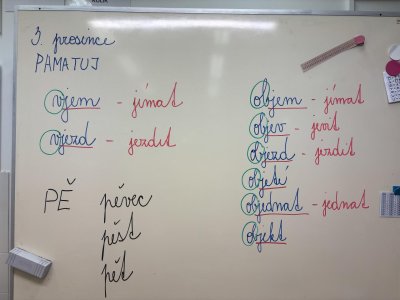 3. prosince
PAMATUJ
vjem - jímat
vjezd - jezdit
PĚ pěvec
pěst
pět
objem - jímat
objev - jevit
objezd - jezdit
objetí
objednat - jednat
objekt